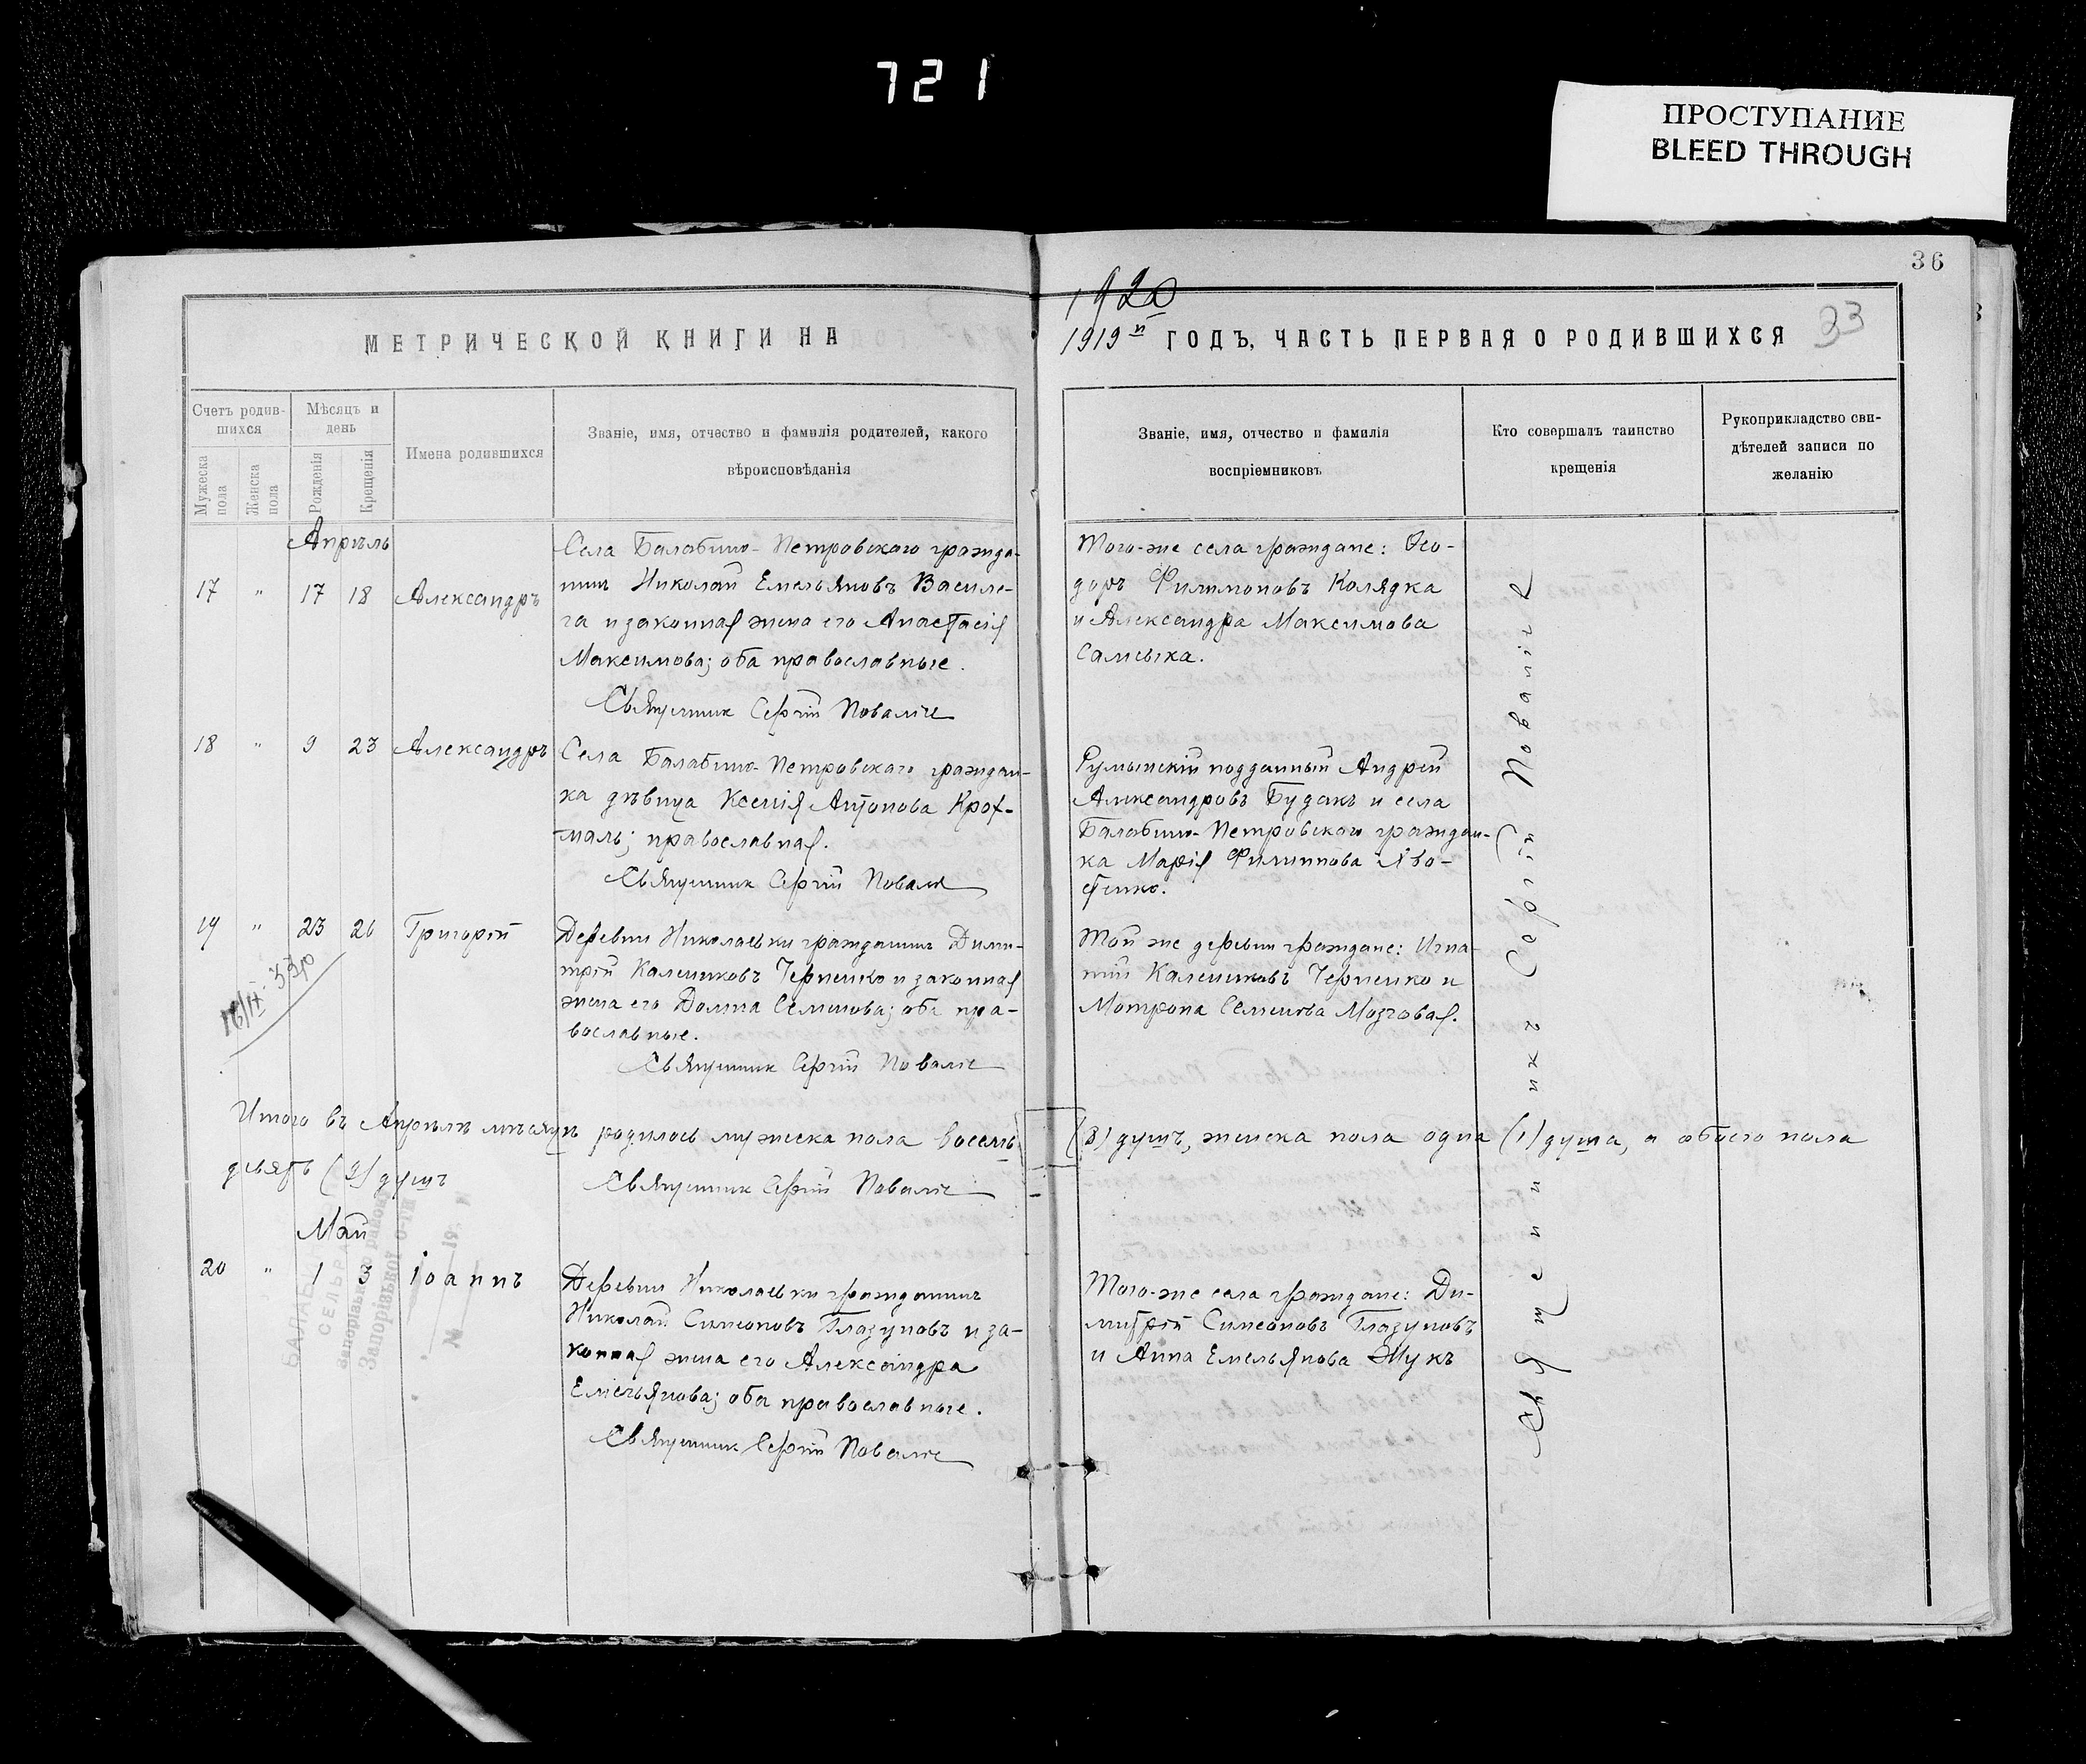 721
ПРОСТУПАНИЕ
BLEED THROUGH
36
1920
МЕТРИЧЕСКОЙ КНИГИ НА 1919й ГОДЪ, ЧАСТЬ ПЕРВАЯ О РОДИВШИХСЯ
33
Счетъ родив-
шихся
Мужеска
пола
Женска
пола
Мѣсяцъ и
день
Рожденія
Крещенія
Имена родившихся
Званіе, имя, отчество и фамилія родителей, какого
вѣроисповѣданія
Званіе, имя, отчество и фамилія
воспріемниковъ
Кто совершалъ таинство
крещенія
Рукоприкладство сви-
дѣтелей записи по
желанію
Апрѣль
17 " 17 18 Александръ
Села Балабино-Петровскаго гражда-
нинъ Николай Емельяновъ Василе-
га и законная жена его Анастасія
Максимова; оба православные.
Священник Сергій
Того-же села граждане: Ѳео-
доръ Филимоновъ Колядка
и Александра Максимова
18 " 9 23 Александръ
Села Балабино-Петровскаго граждан-
ка дѣвица Ксенія Антонова Крох-
маль; православная.
Священник Сергій
Румынскій подданный Андрей
Александровъ Будакъ и села
Балабино-Петровскаго граждан-
ка Марія Филиппова
19 " 23 26 Григорій
Деревни Николаевки гражданинъ Дими-
трій Калениковъ Черненко и законная
жена его Домна Семенова; оба пра-
вославные.
Священник Сергій
Той же деревни граждане: Игна-
тій Калениковъ Черненко и
Мотрона Семенова Мозговая.
Итого въ Апрѣлѣ мѣсяцѣ родилось мужеска пола восемь (8) душъ, женска пола одна (1) душа, а обоего пола
девять (9) душъ
Священник Сергій
Май
20 " 1 3 Іоаннъ
Деревни Николаевки гражданинъ
Николай Симеоновъ Глазуновъ и за-
конная жена его Александра
Емельянова; оба православные.
Священник Сергій
Того-же села граждане: Ди-
митрій Симеоновъ Глазуновъ
и Анна Емельянова Жукъ
Священникъ Сергій